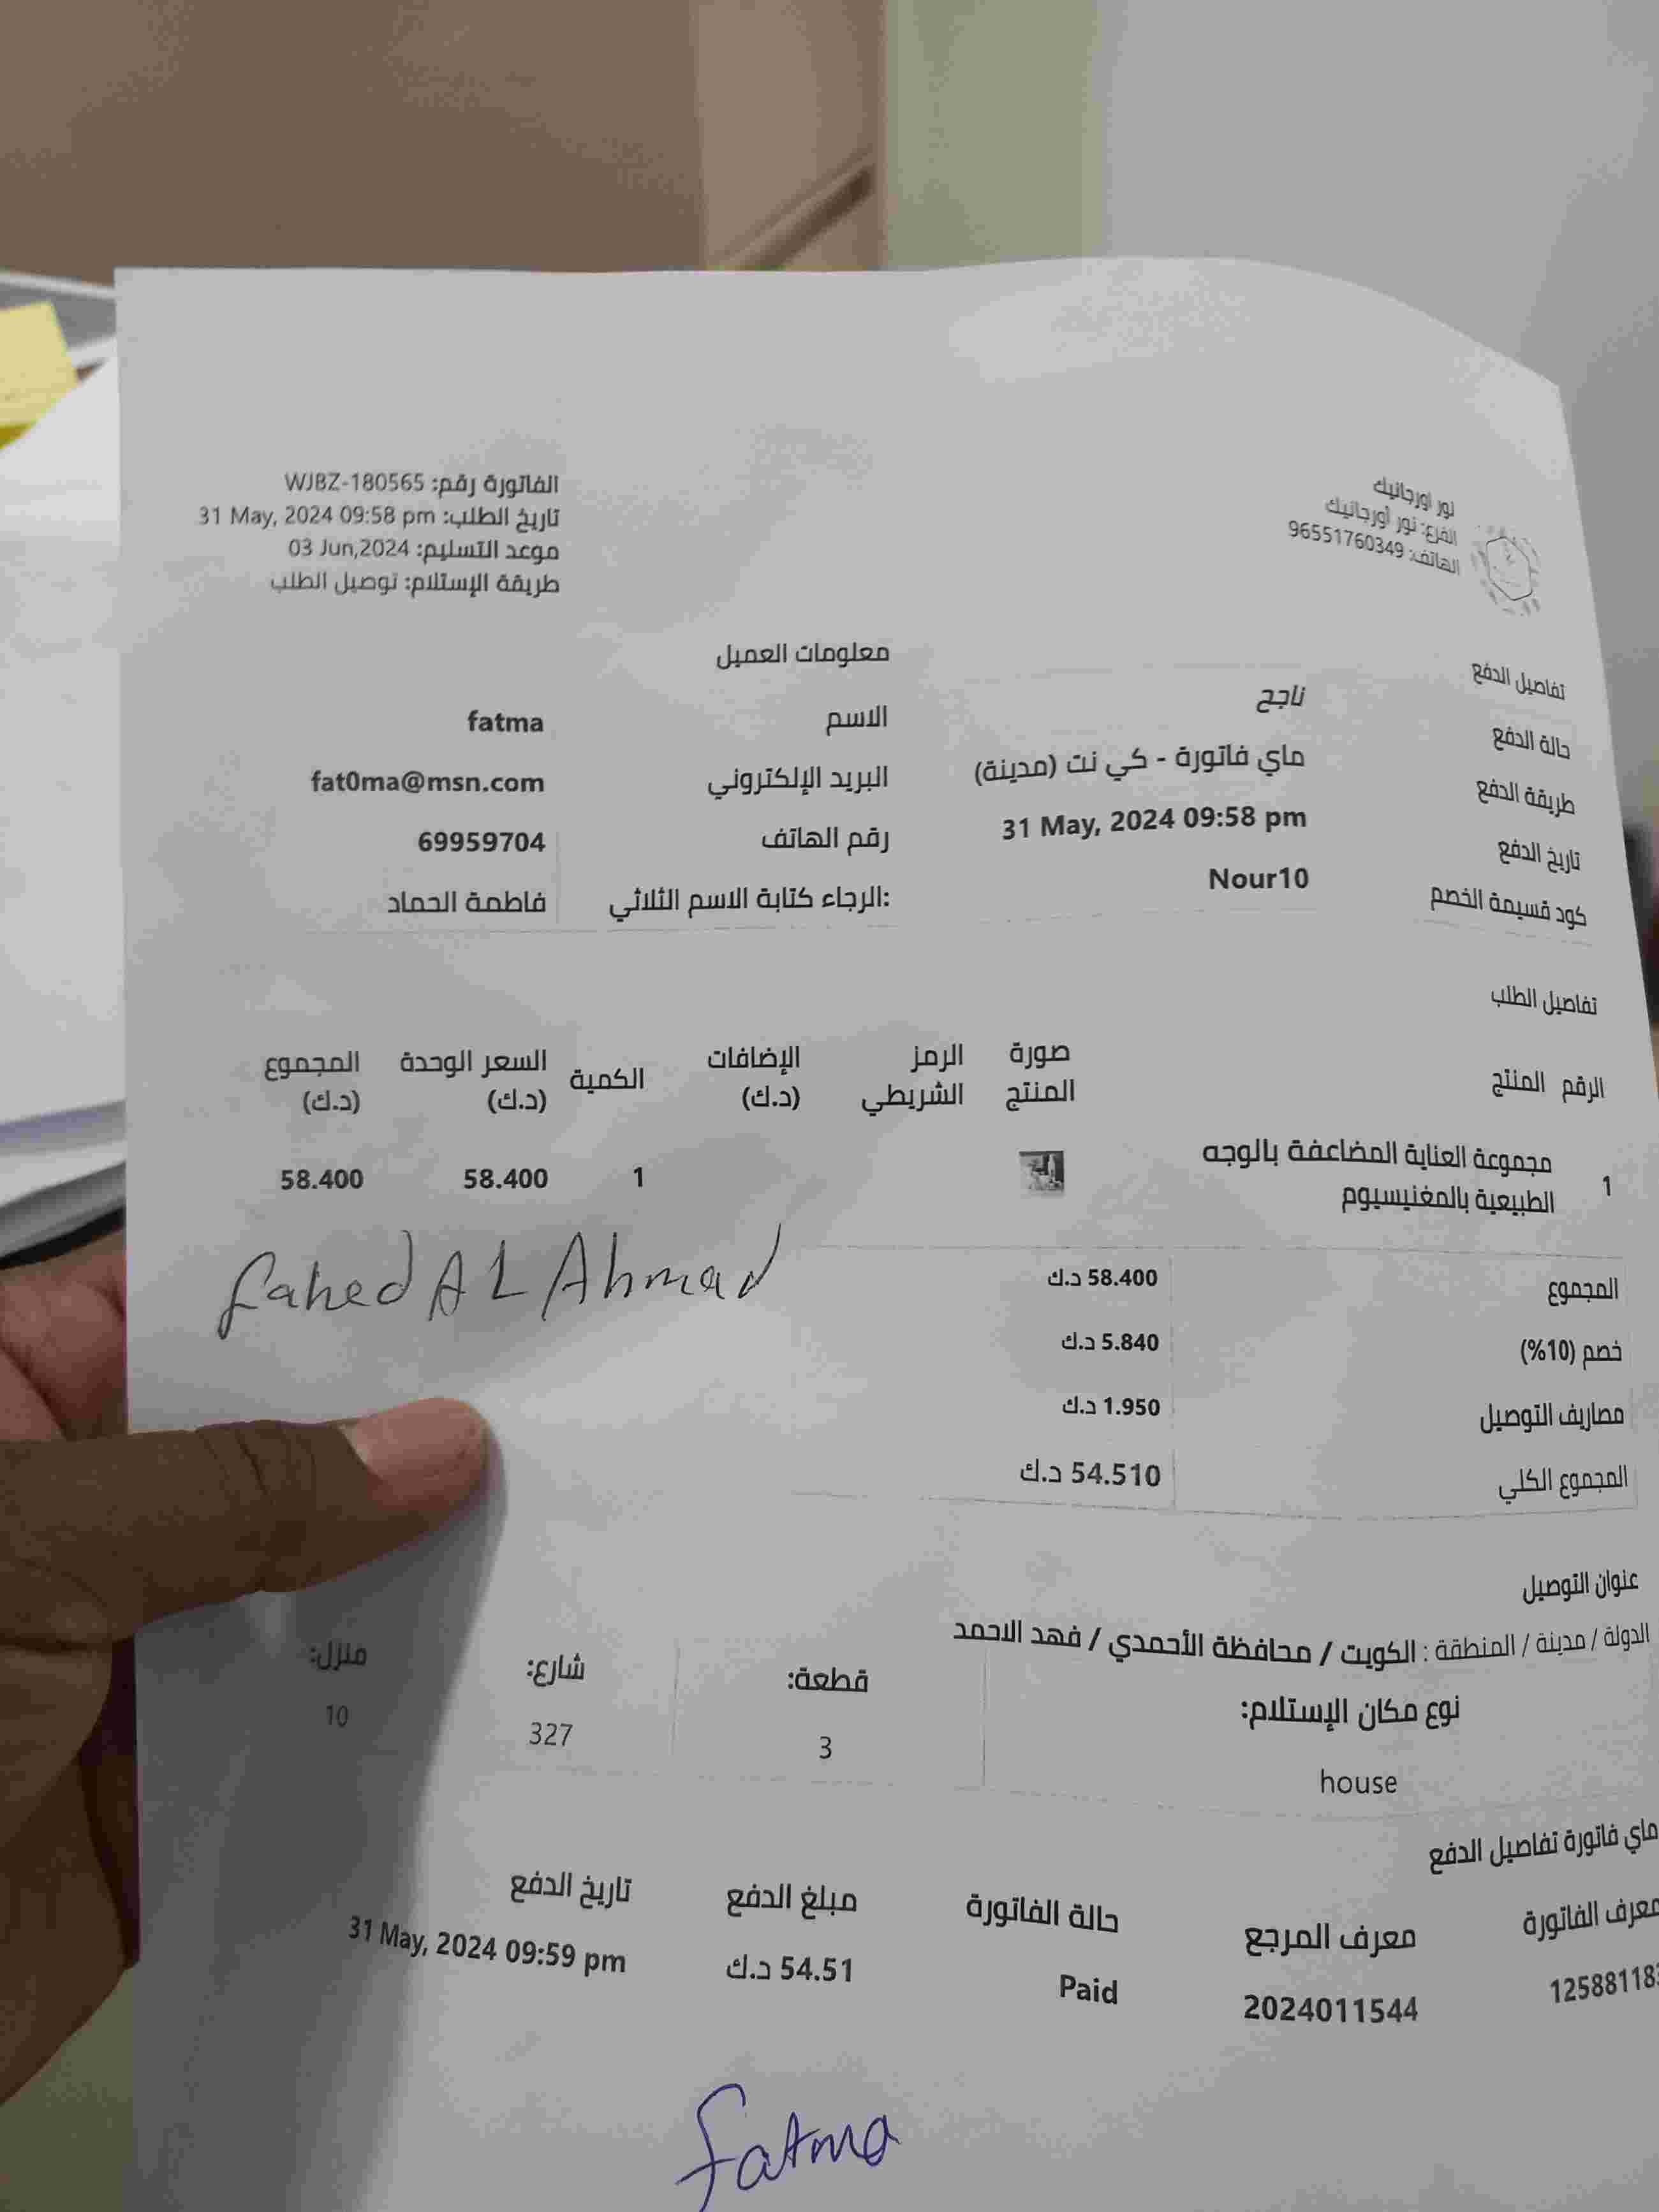 نور اورجانيك
الفرع: نور أورجانيك
الهاتف: 96551760349
الفاتورة رقم: WJBZ-180565
تاريخ الطلب: 31 May, 2024 09:58 pm
موعد التسليم: 03 Jun,2024
طريقة الإستلام: توصيل الطلب
تفاصيل الدفع
حالة الدفع ناجح
طريقة الدفع ماي فاتورة - كي نت (مدينة)
تاريخ الدفع 31 May, 2024 09:58 pm
كود قسيمة الخصم Nour10
معلومات العميل
الاسم fatma
البريد الإلكتروني fat0ma@msn.com
رقم الهاتف 69959704
الرجاء كتابة الاسم الثلاثي: فاطمة الحماد
تفاصيل الطلب
الرقم المنتج صورة المنتج الرمز الشريطي الإضافات (د.ك) الكمية السعر الوحدة (د.ك) المجموع (د.ك)
1 مجموعة العناية المضاعفة بالوجه 1 58.400 58.400
الطبيعية بالمغنيسيوم
fahed AL Ahmad
المجموع 58.400 د.ك
خصم (10%) 5.840 د.ك
مصاريف التوصيل 1.950 د.ك
المجموع الكلي 54.510 د.ك
عنوان التوصيل
الدولة / مدينة / المنطقة : الكويت / محافظة الأحمدي / فهد الاحمد
نوع مكان الإستلام: قطعة: شارع: منزل:
house 3 327 10
ماي فاتورة تفاصيل الدفع
معرف الفاتورة معرف المرجع حالة الفاتورة مبلغ الدفع تاريخ الدفع
2024011544 Paid 54.51 د.ك 31 May, 2024 09:59 pm
fatma